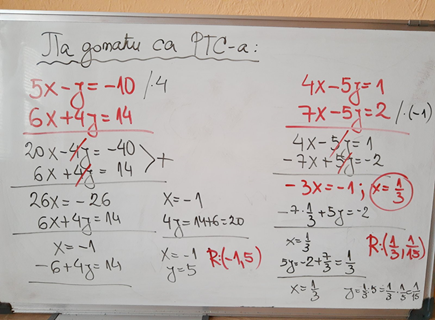 Па домаћи са РТС-а:
5x-y=-10 /·4
6x+4y=14
20x-4y=-40
6x+4y=14 >+
26x=-26
6x+4y=14
x=-1
-6+4y=14
x=-1
4y=14+6=20
x=-1
y=5
R:(-1,5)
4x-5y=1
7x-5y=2 /·(-1)
4x-5y=1
-7x+5y=-2
-3x=-1; x=1/3
-7·1/3+5y=-2
x=1/3
5y=-2+7/3=1/3
R:(1/3,1/15)
x=1/3
y=1/3:5=1/3·1/5=1/15